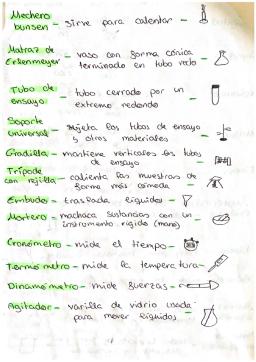 Mechero bunsen - sirve para calentar -
Matraz de Erlenmeyer - vaso con forma cónica
terminado en tubo recto -
Tubo de ensayo - tubo cerrado por un
extremo redondo
Soporte universal - sujeta los tubos de ensayo
y otros materiales
Gradilla - mantiene verticales los tubos
de ensayo
Trípode con rejilla - calienta las muestras de
forma más cómoda -
Embudo - traslada líquidos -
Mortero - machaca sustancias con un
instrumento rígido (mano)
Cronómetro - mide el tiempo -
Termómetro - mide la temperatura -
Dinamómetro - mide fuerzas -
Agitador - varilla de vidrio usada
para mover líquidos